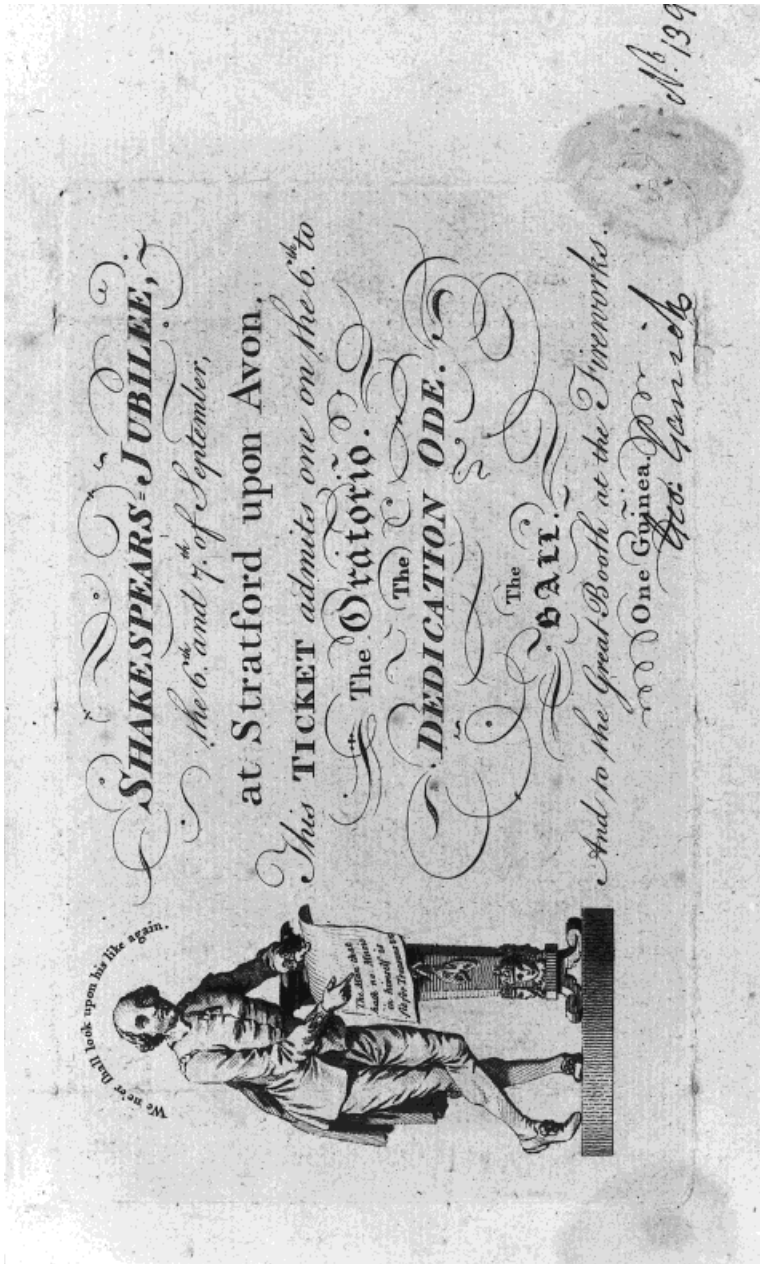 We ne'er ſhall look upon his like again.
The Man that
hath no Music
in himself is
fit for Treasons &c
SHAKESPEARS=JUBILEE,
the 6.th and 7.th of September,
at Stratford upon Avon.
This TICKET admits one on the 6.th to
The Oratorio.
The
DEDICATION ODE.
The
BALL.
And to the Great Booth at the Fireworks.
One Guinea.
Geo: Garrick
No. 139